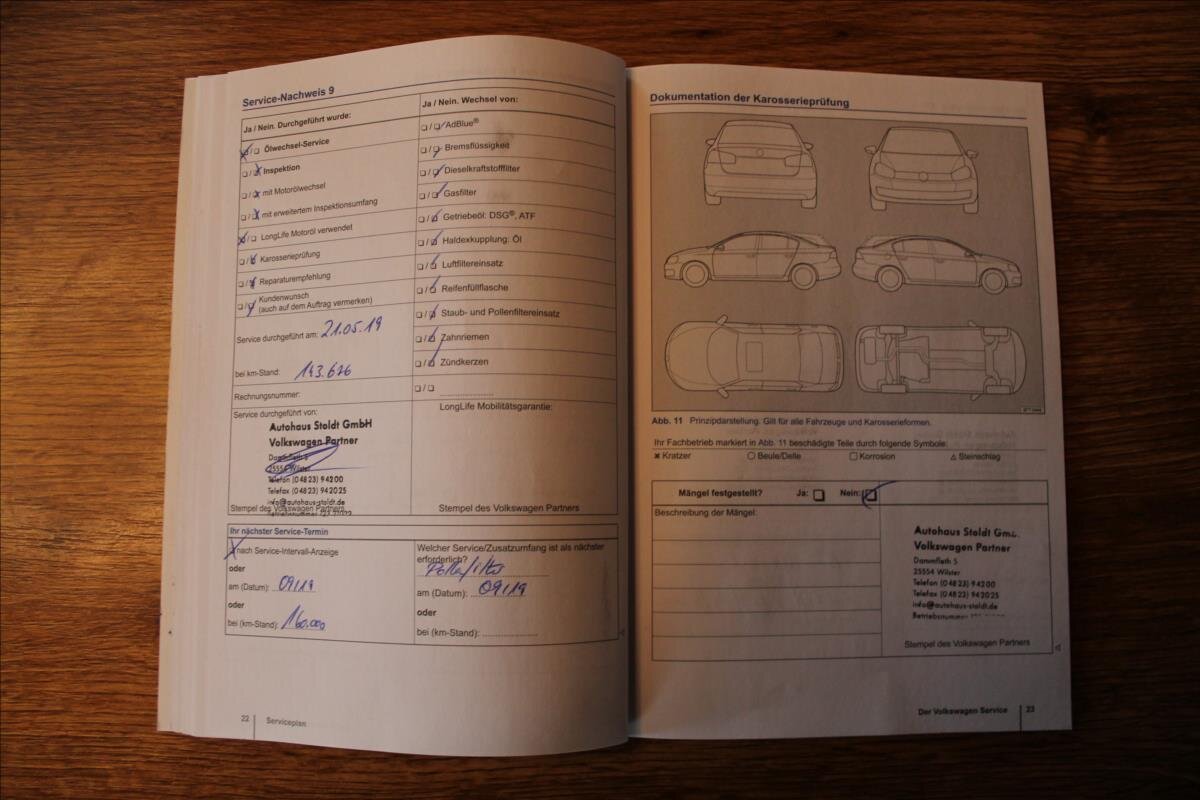 Service-Nachweis 9
Ja / Nein. Durchgeführt wurde:
Ölwechsel-Service
Inspektion
mit Motorölwechsel
mit erweitertem Inspektionsumfang
LongLife Motoröl verwendet
Karosserieprüfung
Reparaturempfehlung
Kundenwunsch
(auch auf dem Auftrag vermerken)
Service durchgeführt am: 21.05.19
bei km-Stand: 143.676
Rechnungsnummer:
Service durchgeführt von:
Autohaus Stoldt GmbH
Volkswagen Partner
Dammfleth 5
25554 Wilster
Telefon (04823) 94200
Telefax (04823) 942025
info@autohaus-stoldt.de
Stempel des Volkswagen Partners
Ja / Nein. Wechsel von:
AdBlue®
Bremsflüssigkeit
Dieselkraftstofffilter
Gasfilter
Getriebeöl: DSG®, ATF
Haldexkupplung: Öl
Luftfiltereinsatz
Reifenfüllflasche
Staub- und Pollenfiltereinsatz
Zahnriemen
Zündkerzen
LongLife Mobilitätsgarantie:
Stempel des Volkswagen Partners
Ihr nächster Service-Termin
nach Service-Intervall-Anzeige
oder
am (Datum): 09/19
oder
bei (km-Stand): 160.000
Welcher Service/Zusatzumfang ist als nächster
erforderlich?
am (Datum): 09/19
oder
bei (km-Stand):
22 Serviceplan
Dokumentation der Karosserieprüfung
Abb. 11 Prinzipdarstellung. Gilt für alle Fahrzeuge und Karosserieformen.
Ihr Fachbetrieb markiert in Abb. 11 beschädigte Teile durch folgende Symbole:
Kratzer Beule/Delle Korrosion Steinschlag
Mängel festgestellt? Ja: Nein:
Beschreibung der Mängel:
Autohaus Stoldt GmbH
Volkswagen Partner
Dammfleth 5
25554 Wilster
Telefon (04823) 94200
Telefax (04823) 942025
info@autohaus-stoldt.de
Betriebsnummer
Stempel des Volkswagen Partners
Der Volkswagen Service 23